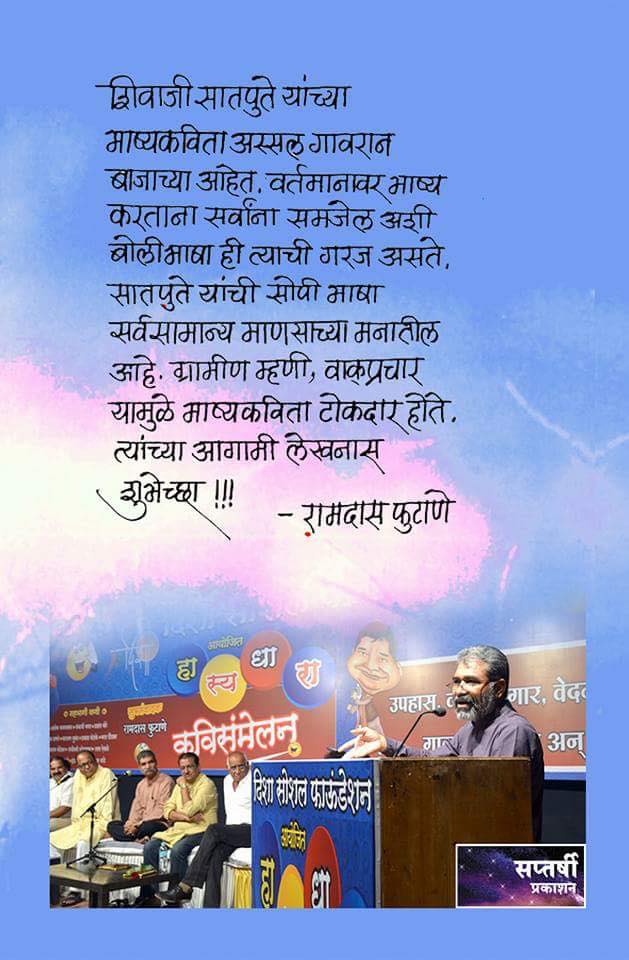 शिवाजी सातपुते यांच्या
भाष्यकविता अस्सल गावरान
बाजाच्या आहेत. वर्तमानावर भाष्य
करताना सर्वांना समजेल अशी
बोलीभाषा ही त्याची गरज असते.
सातपुते यांची सोपी भाषा
सर्वसामान्य माणसाच्या मनातील
आहे. ग्रामीण म्हणी, वाक्प्रचार
यामुळे भाष्यकविता टोकदार होते.
त्यांच्या आगामी लेखनास
शुभेच्छा !!!
- रामदास फुटाणे
आयोजित
हास्यधारा
रामदास फुटाणे
कविसंमेलन
उपहास,
गार, वेद
अन्
दिशा सोशल फाऊंडेशन
आयोजित
हा
धा
सप्तर्षी
प्रकाशन